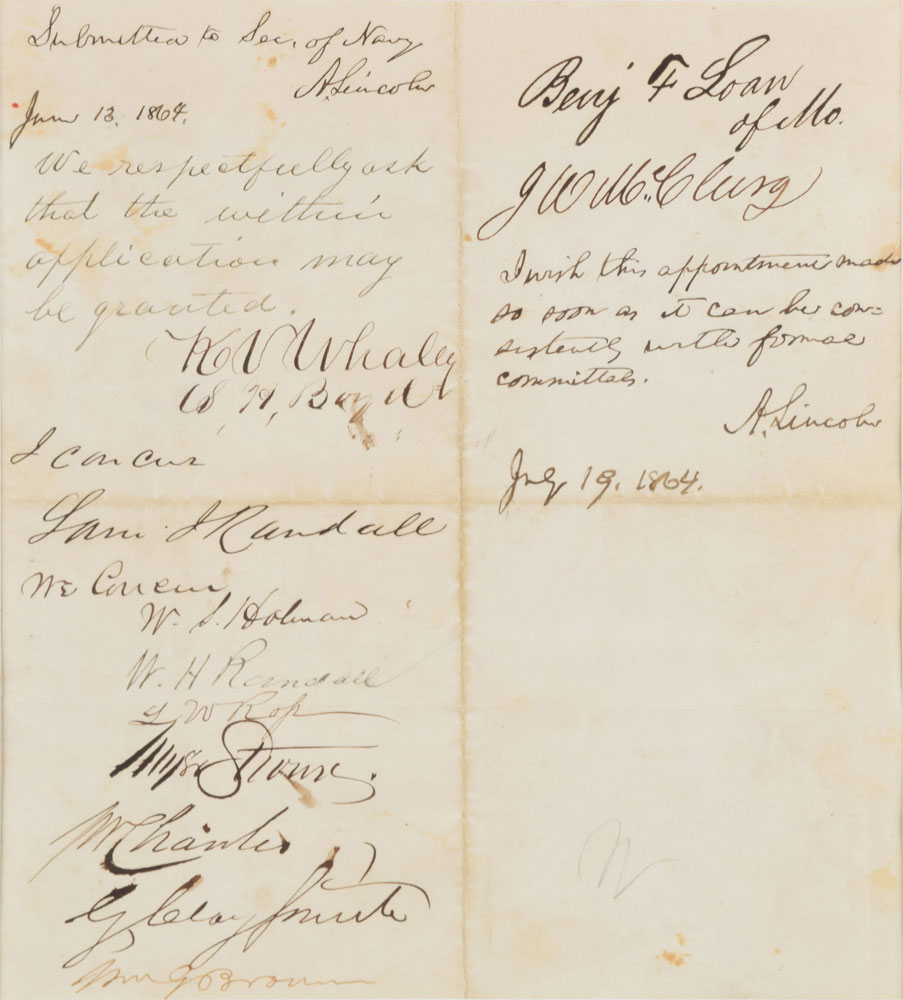 Submitted to Sec. of Navy
A. Lincoln
June 13, 1864.
We respectfully ask
that the within
application may
be granted.
K V Whaley
S. H. Boyd
I concur
Sam J Randall
We Concur
W. S. Holman
W. H Randall
L W Ross
Myer Strouse.
W Chanler
G Clay Smith
Wm G Brown
Benj F Loan
of Mo.
J W McClurg
I wish this appointment made
so soon as it can be con=
sistently with formal
committals.
A. Lincoln
July 19. 1864.
W